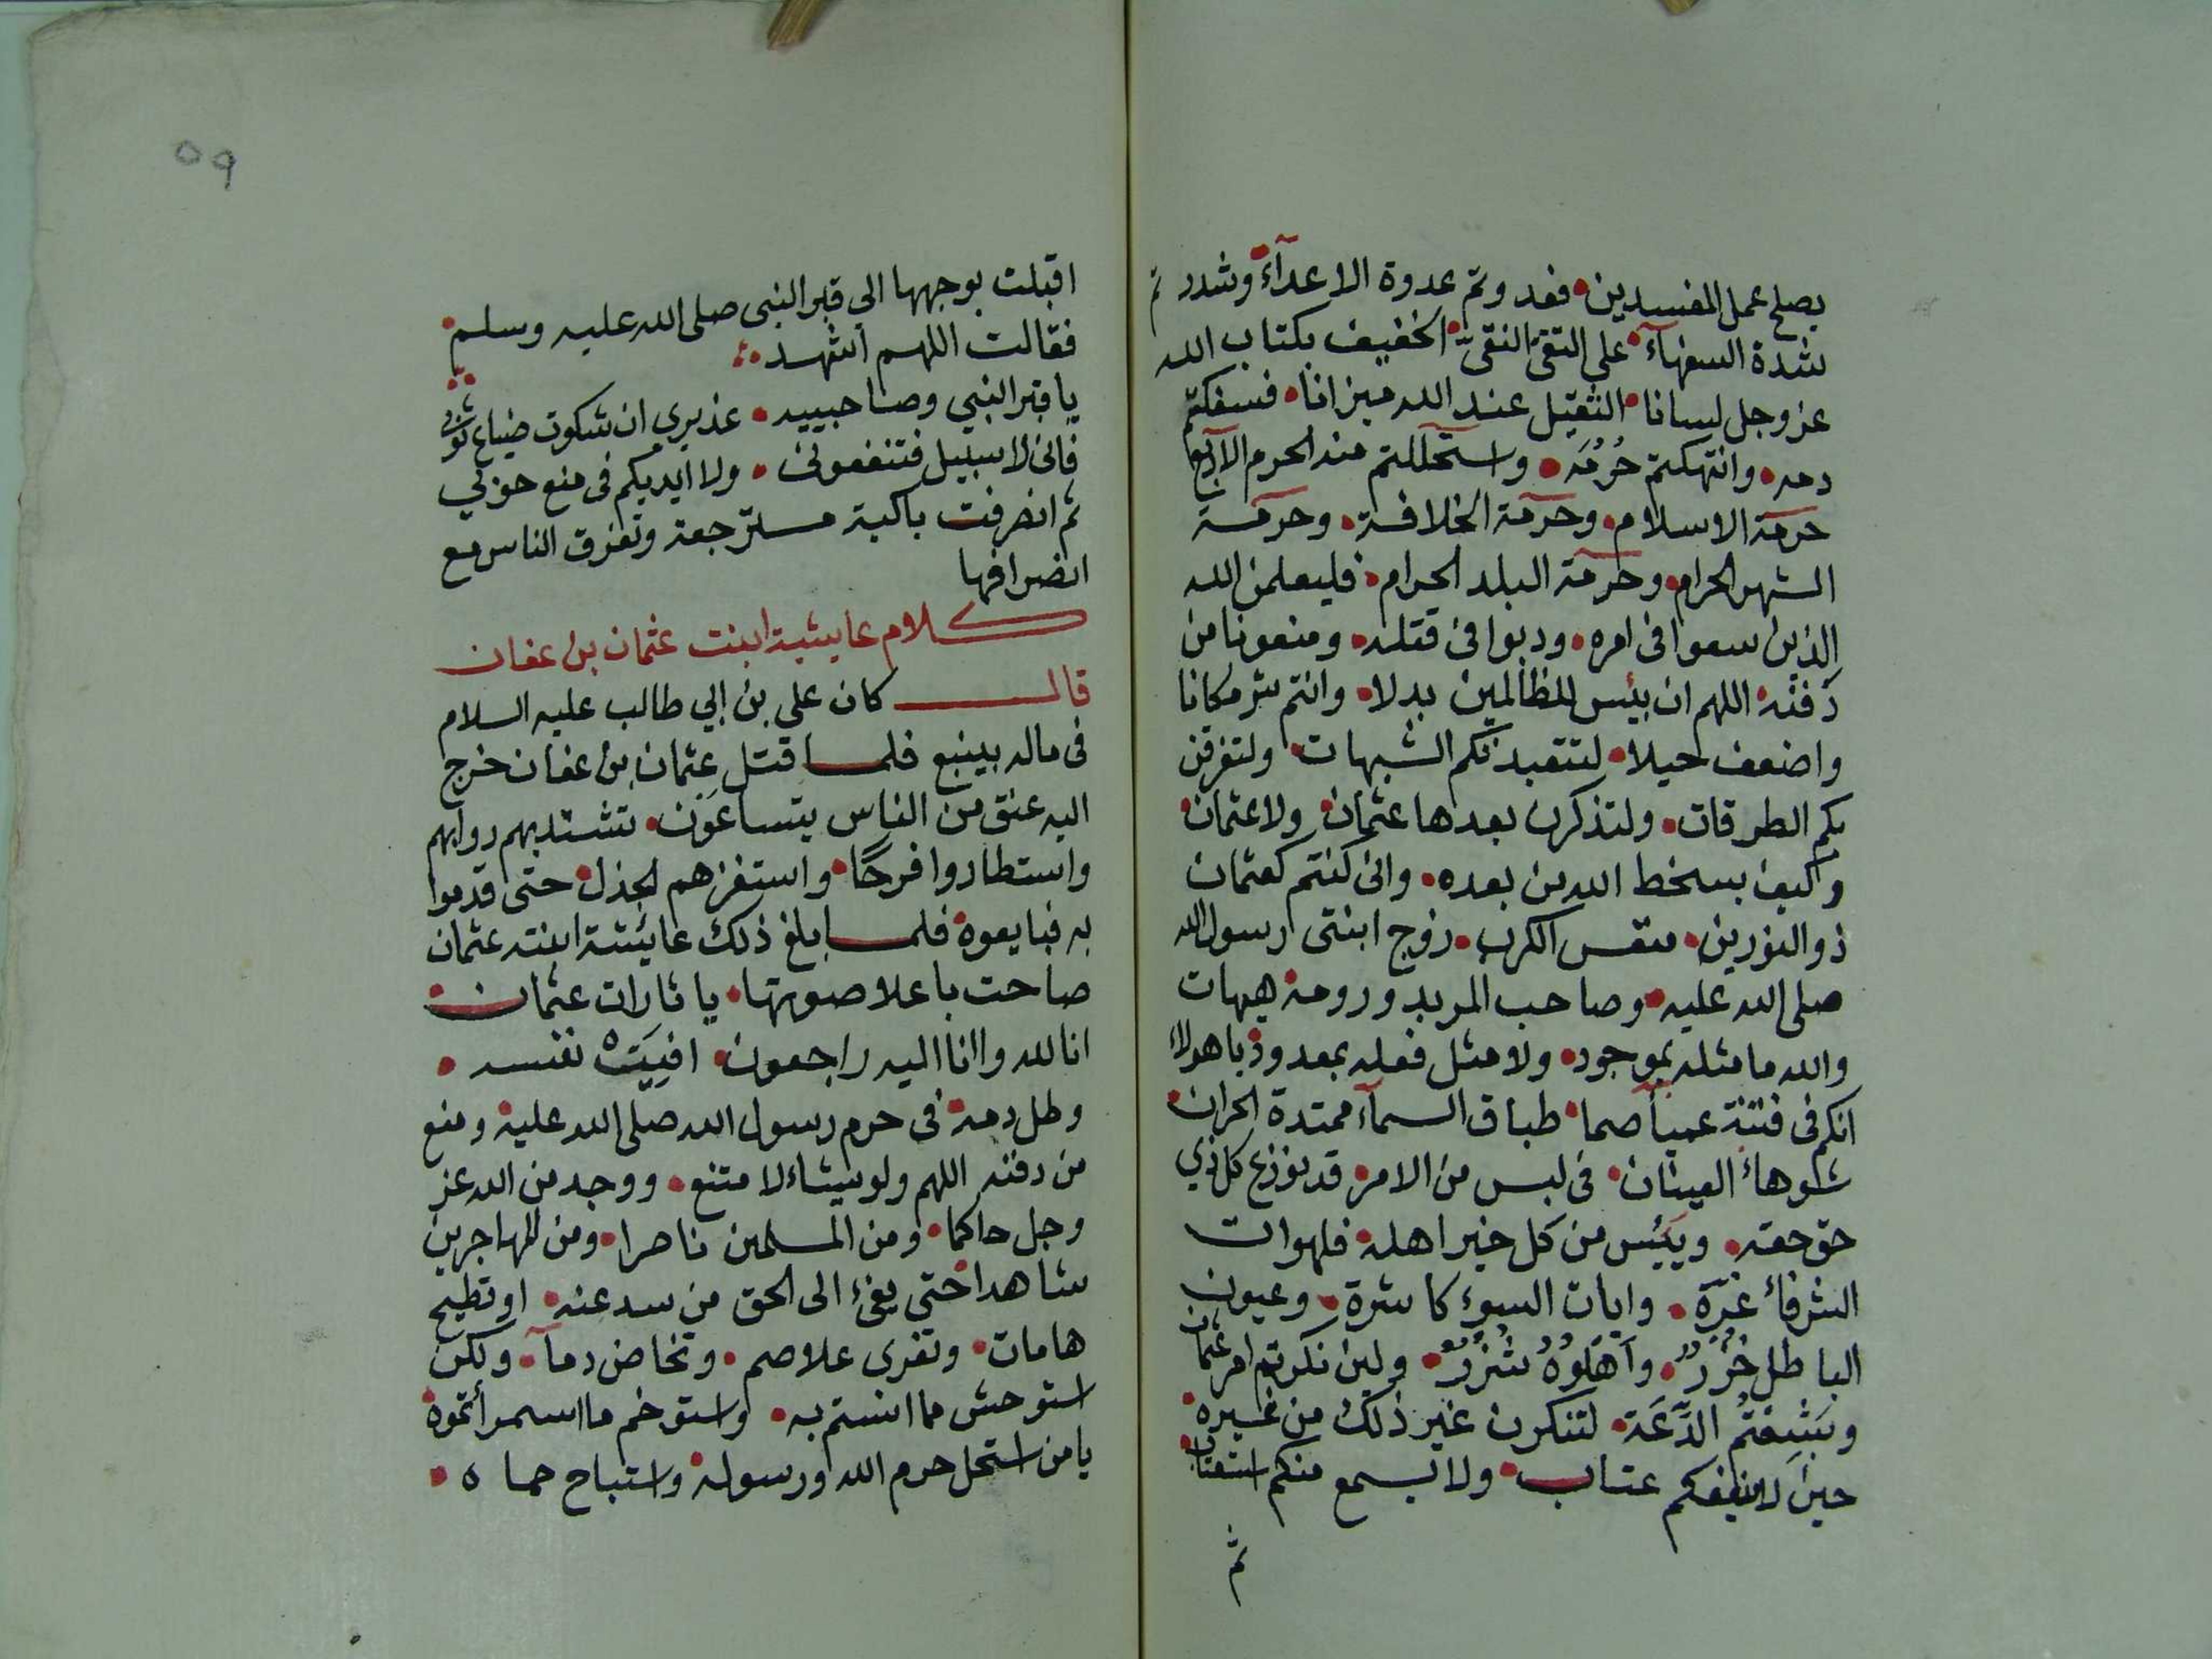 يصلح عمل المفسدين • فعدوتم عدوة الاعدآء • وشددتم
شدة السفهآء • على التقي النقي • الخفيف بكتاب الله
عز وجل لسانا • الثقيل عند الله ميزانا • فسفكتم
دمه • وانتهكتم حُرُمَه • واستحللتم منه الحرم الاربع
حرمة الاسلام • وحرمة الخلافة • وحرمة
الشهر الحرام • وحرمة البلد الحرام • فليعلمن الله
الذين سعوا فى امره • ودبوا فى قتله • ومنعونا من
دفنه • اللهم ان بئس للظالمين بدلا • وانتم شر مكانا
واضعف حيلا • لتتعبدنكم الشبهات • ولتفرقن
بكم الطرقات • ولتذكرن بعدها عثمان • ولا عثمان •
وكيف بسخط الله من بعده • وانى كنتم كعثمان
ذو النورين • منفس الكرب • زوج ابنتى رسول الله
صلى الله عليه • وصاحب المربد ورومة • هيهات
والله ما مثله بموجود • ولا مثل فعله بمعدود • يا هولاء
انكم فى فتنة عميآ صما • طباق السمآء ممتدة الحران •
شوهاء العينان • فى لبس من الامر • قد توزع كل ذي
حق حقه • ويَئِس من كل خير اهله • فلهوات
الشر فاغرة • وانياب السوء كاشرة • وعيون
الباطل خُزْرٌ • واهلوه شُزْرٌ • ولين نكرتم امر عثمان
وبَشِعْتُم الدَّعَة • لتنكرن غير ذلك من غيره •
حين لا ينفعكم عتاب • ولا يسمع منكم استعتاب •
ثم
٥٩
اقبلت بوجهها الى قبر النبى صلى الله عليه وسلم •
فقالت اللهم اشهد
يا قبر النبي وصاحبيه • عذيري ان شكوت ضياع ثوبي
فانى لا سبيل فتنفعونى • ولا ايديكم فى منع حوبي
ثم انصرفت باكية مسترجعة وتفرق الناس مع
انصرافها
كلام عايشة ابنت عثمان بن عفان
قال كان علي بن ابي طالب عليه السلام
فى ماله بينبع فلما قتل عثمان بن عفان خرج
اليه عنق من الناس يتساعَوْن • تشتد بهم دوابهم
واستطاروا فرحًا • واستفزهم الجذل • حتى قدموا
به فبايعوه • فلما بلغ ذلك عايشة ابنته عثمان
صاحت باعلا صوتها • يا ثارات عثمان •
انا لله وانا اليه راجعون • افنيت نفسه •
وطل دمه • فى حرم رسول الله صلى الله عليه • ومنع
من دفنه اللهم ولو يشاء لامتنع • ووجد من الله عز
وجل حاكما • ومن المسلمين ناصرا • ومن المهاجرين
شاهدا • حتى يفئ الى الحق من سد عنه • او تطيح
هامات • وتفرى غلاصم • وتخاض دمآ • ولكن
استوحش مما انستم به • واستوخم ما استمرأتموه •
يا من استحل حرم الله ورسوله • واستباح حماه •